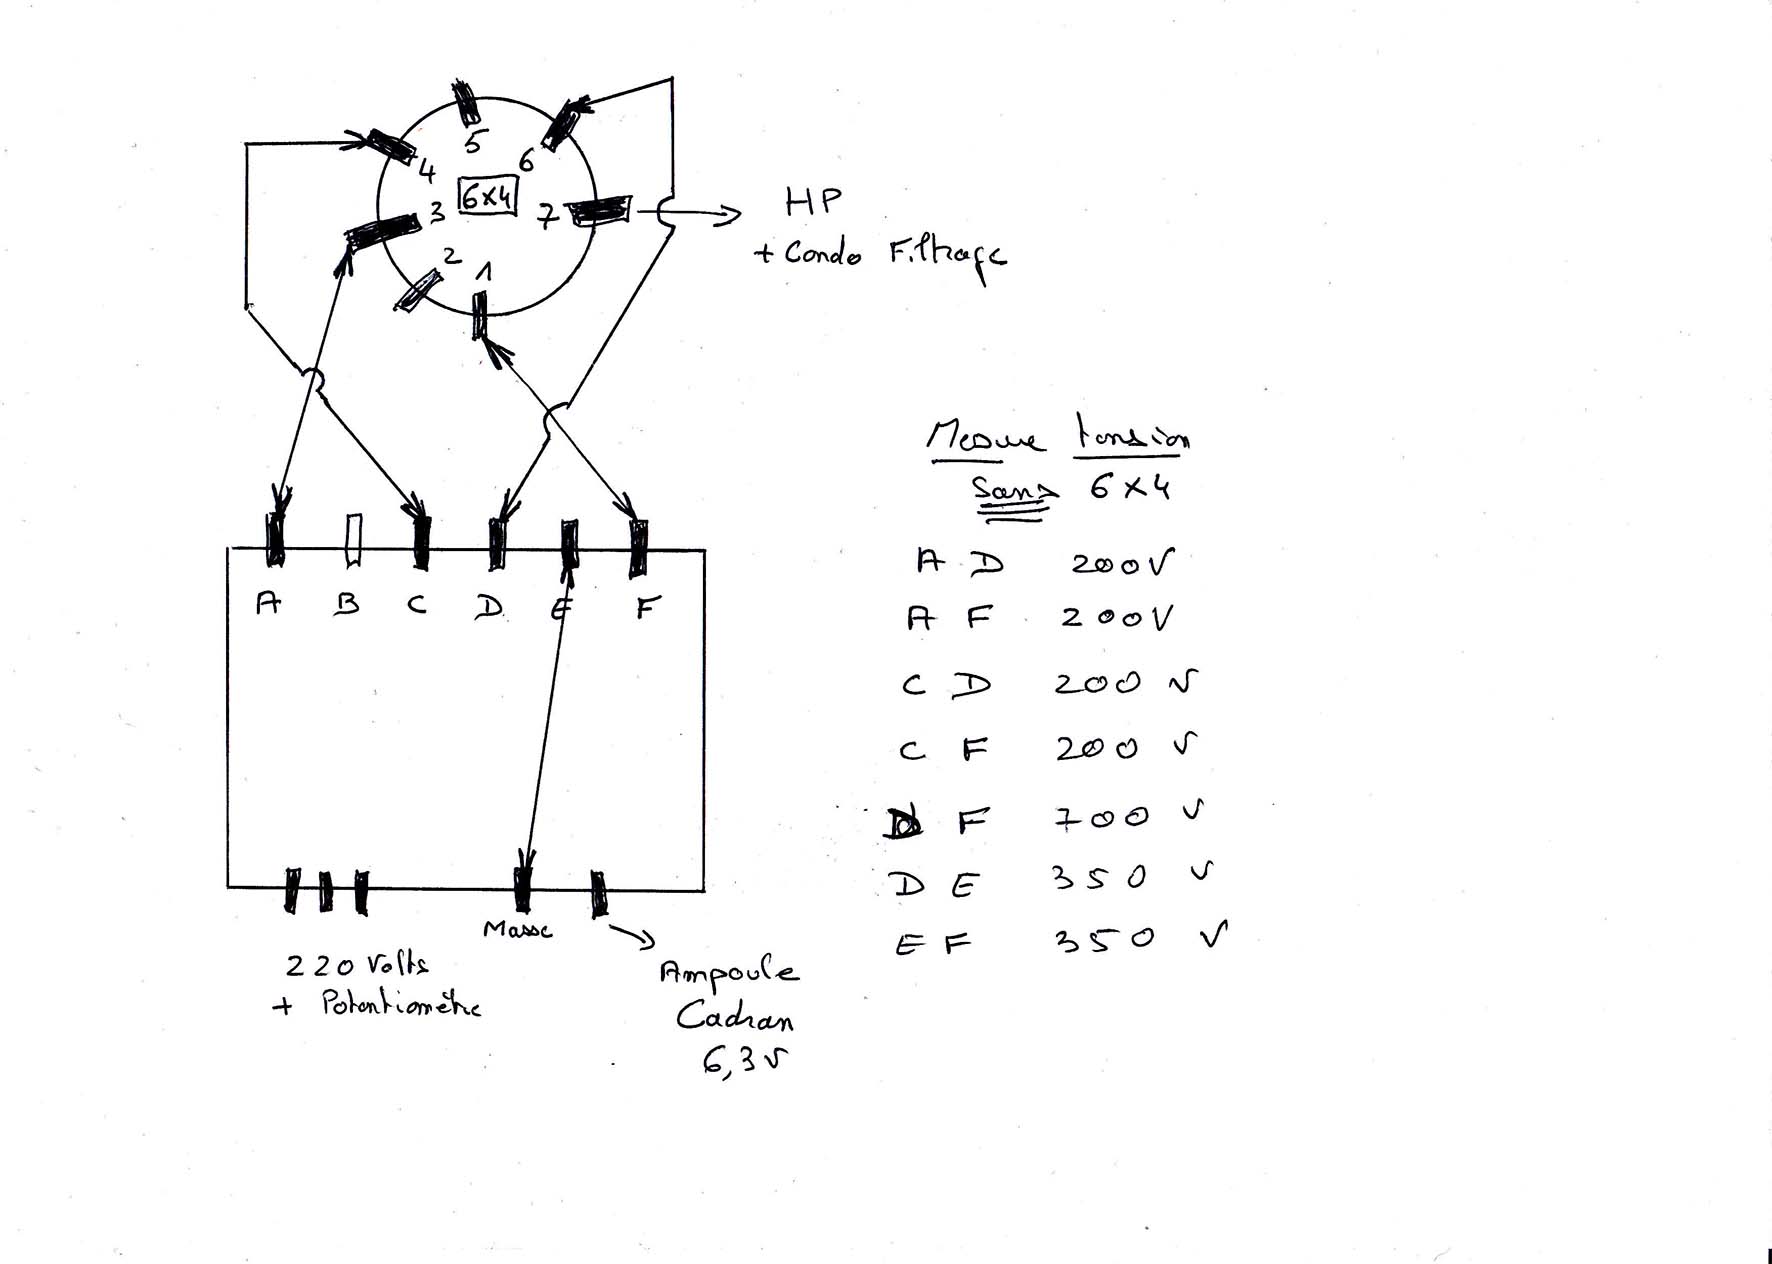 5
4
6
6x4
3
7
HP
2
+ Condo Filtrage
1
Mesure tension
Sans 6x4
A D 200V
A B C D E F
A F 200V
C D 200 V
C F 200 V
D F 700 V
D E 350 V
E F 350 V
Masse
220 Volts
+ Potentiomètre
Ampoule
Cadran
6,3 V